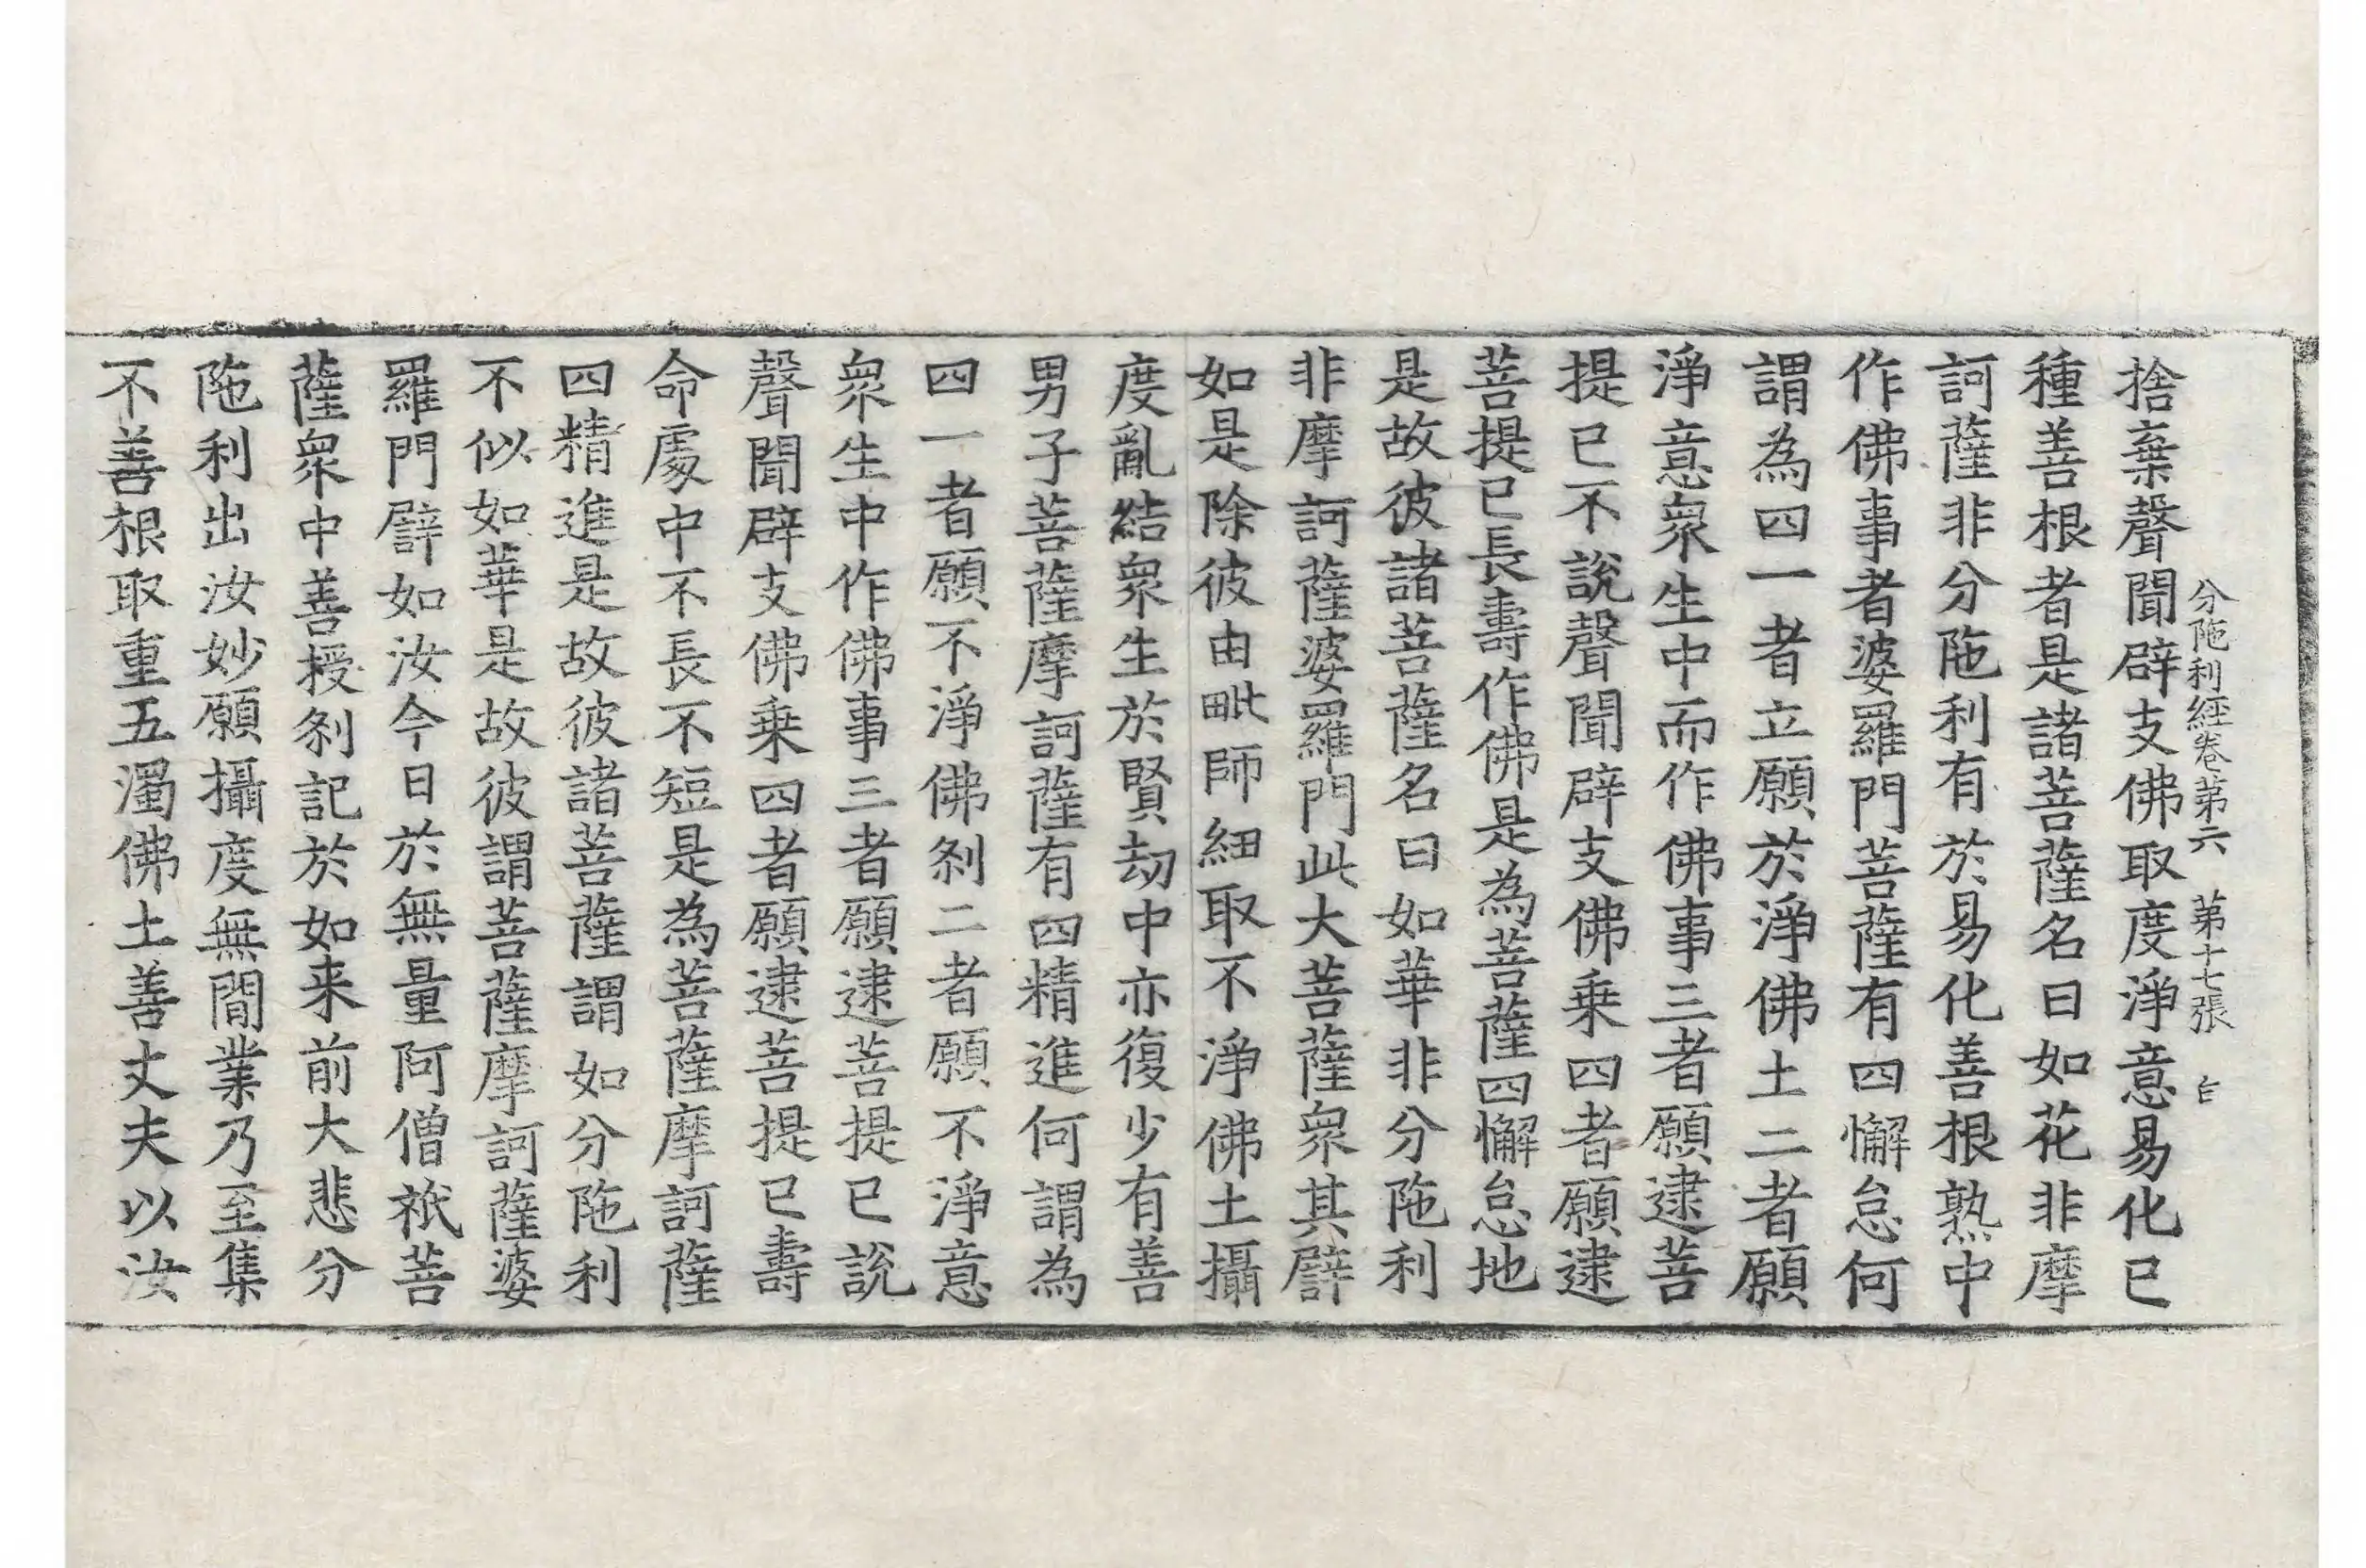 分陁利經卷第六　第十七張　白
捨棄聲聞辟支佛取度淨意易化已
種善根者是諸菩薩名曰如花非摩
訶薩非分陁利有於易化善根熟中
作佛事者婆羅門菩薩有四懈怠何
謂為四一者立願於淨佛土二者願
淨意衆生中而作佛事三者願逮菩
提已不說聲聞辟支佛乗四者願逮
菩提已長壽作佛是為菩薩四懈怠地
是故彼諸菩薩名曰如華非分陁利
非摩訶薩婆羅門此大菩薩衆其譬
如是除彼由毗師紐取不淨佛土攝
度亂結衆生於賢劫中亦復少有善
男子菩薩摩訶薩有四精進何謂為
四一者願不淨佛刹二者願不淨意
衆生中作佛事三者願逮菩提已說
聲聞辟支佛乗四者願逮菩提已壽
命處中不長不短是為菩薩摩訶薩
四精進是故彼諸菩薩謂如分陁利
不似如華是故彼謂菩薩摩訶薩婆
羅門譬如汝今日於無量阿僧祇菩
薩衆中善授刹記於如来前大悲分
陁利出汝妙願攝度無間業乃至集
不善根取重五濁佛土善丈夫以汝